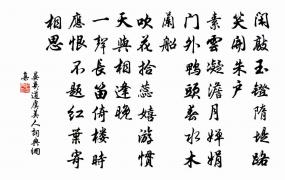 閑敲玉鐙隋堤路
一笑開朱戶
素雲凝澹月嬋娟
門外鴨頭春水木
蘭船
吹花拾蕊嬉游慣
天與相逢晚
一聲長笛倚樓時
應恨不題紅葉寄
相思
晏幾道虞美人詞典網
集